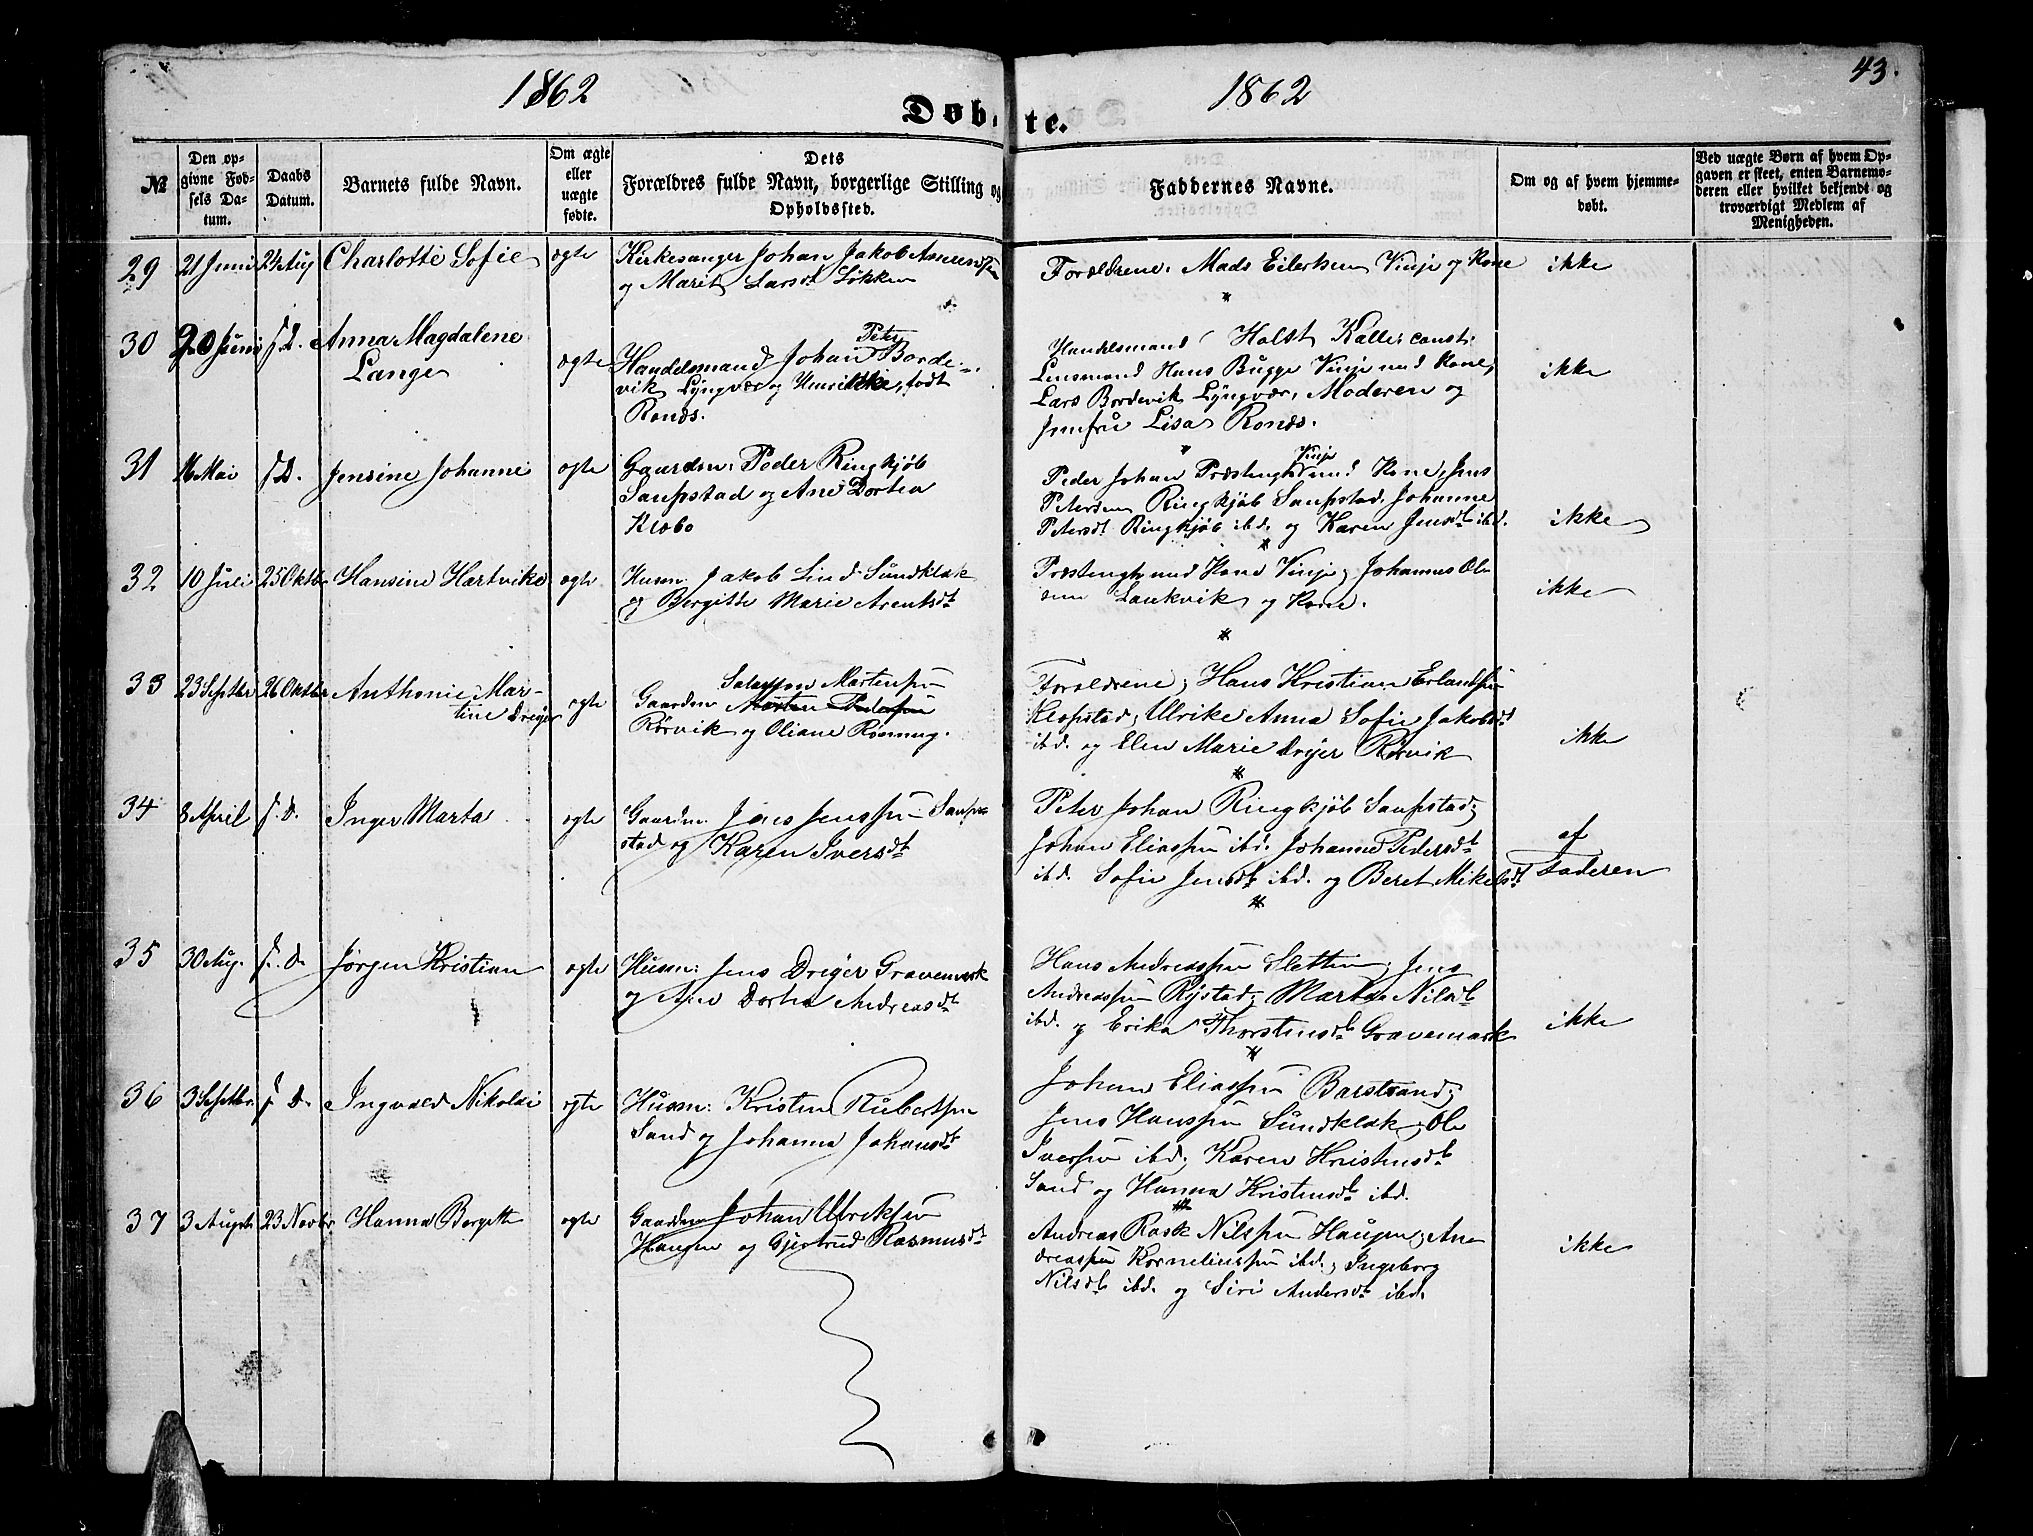 1862
1862
43.
Døbte.
№
Den opgivne Fødsels Datum.
Daabs Datum.
Barnets fulde Navn.
Om ægte eller uægte fødte.
Dets Forældres fulde Navn, borgerlige Stilling og Opholdssted.
Faddernes Navne.
Om og af hvem hjemmedøbt.
Ved uægte Børn af hvem Opgaven er skeet, enten Barnemoderen eller hvilket bekjendt og troværdigt Medlem af Menigheden.
29 21 Juni 24 Aug Charlotte Sofie ægte Kirkesanger Johan Jakob
og Marit Larsdt Løkken
Forældrene, Mads Eilertsen Vinje og Kone ikke
30 20 Juni s. D. Anna Magdalene
Lange ægte Handelsmand Johan Peter Borde-
vik Lyngvær og Henrikke, født
Rønds.
Handelsmand Holst Kalle; const:
Lensmand Hans Bugge Vinje med Kone,
Lars Bordevik Lyngvær, Moderen og
Jomfru Lisa Rønds. ikke
31 16 Mai s. D. Jensine Johanne ægte Gaardm: Peder Ringkjøb
Saupstad og Ane Dortea
Klæbo
Peder Johan Præstengh Vinje med Kone, Jens
Petersen Ringkjøb Saupstad, Johanne
Petersdt Ringkjøb ibd. og Karen Jensdt ibd. ikke
32 10 Juli 25 Oktbr Hansine Hartvike ægte Husm: Jakob Lind Sundklak
og Bergitte Marie Arentsdt
Præstengh med Kone Vinje, Johannes Ol-
sen Laukvik og Kone. ikke
33 23 Septbr 26 Oktbr Anthonie Mar-
tine Dreyer ægte Gaardm Morten Pedersen
Mortensen
Rørvik og Oliane Rønning.
Forældrene, Hans Kristian Erlandsen
Kleppstad, Ulrike Anna Sofie Jakobsdt
ibd. og Elen Marie Dreyer Rørvik ikke
34 8 April s. D. Inger Marta ægte Gaardm. Jens Jenssen Saup-
stad og Karen Iversdt
Peter Johan Ringkjøb Saupstad;
Johan Eliassen ibd. Johanne Pedersdt
ibd. Sofie Jensdt ibd. og Beret Mikelsdt
af
Faderen
35 30 Aug. s. D. Jørgen Kristian ægte Husm: Jens Dreyer Gravemark
og Ane Dortea Andreasdt
Hans Andreassen Sletten; Jens
Andreassen Rystad; Marta Nilsdt
ibd. og Erika Thorstensdt Gravemark ikke
36 3 Septbr. s. D. Ingvald Nikolai ægte Husm: Kristen Rubertsen
Sand og Johanna Johansdt
Johan Eliassen Barstrand;
Jens Hanssen Sundklak; Ole
Iversen ibd; Karen Kristensdt
Sand og Hanna Kristensdt ibd.
37 3 Augst 23 Novbr Hanna Bergitte ægte Gaardm Johan Ulriksen
Haugen og Gjertrud Rasmusdt
Andreas Rask Nilssen Haugen; An-
dreassen Korneliussen ibd.; Ingeborg
Nilsdt ibd. og Siri Andersdt ibd. ikke